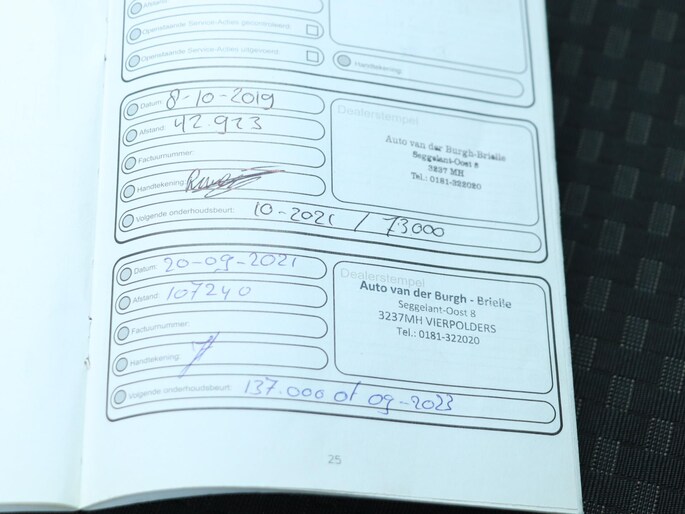 Afstand:
Openstaande Service-Acties gecontroleerd:
Openstaande Service-Acties uitgevoerd:
Handtekening:
Datum: 8-10-2019
Afstand: 42.923
Factuurnummer:
Handtekening:
Volgende onderhoudsbeurt: 10-2021 / 73000
Dealerstempel
Auto van der Burgh-Brielle
Seggelant-Oost 8
3237 MH
Tel.: 0181-322020
Datum: 20-09-2021
Afstand: 107240
Factuurnummer:
Handtekening:
Volgende onderhoudsbeurt: 137.000 of 09-2023
Dealerstempel
Auto van der Burgh - Brielle
Seggelant-Oost 8
3237MH VIERPOLDERS
Tel.: 0181-322020
25